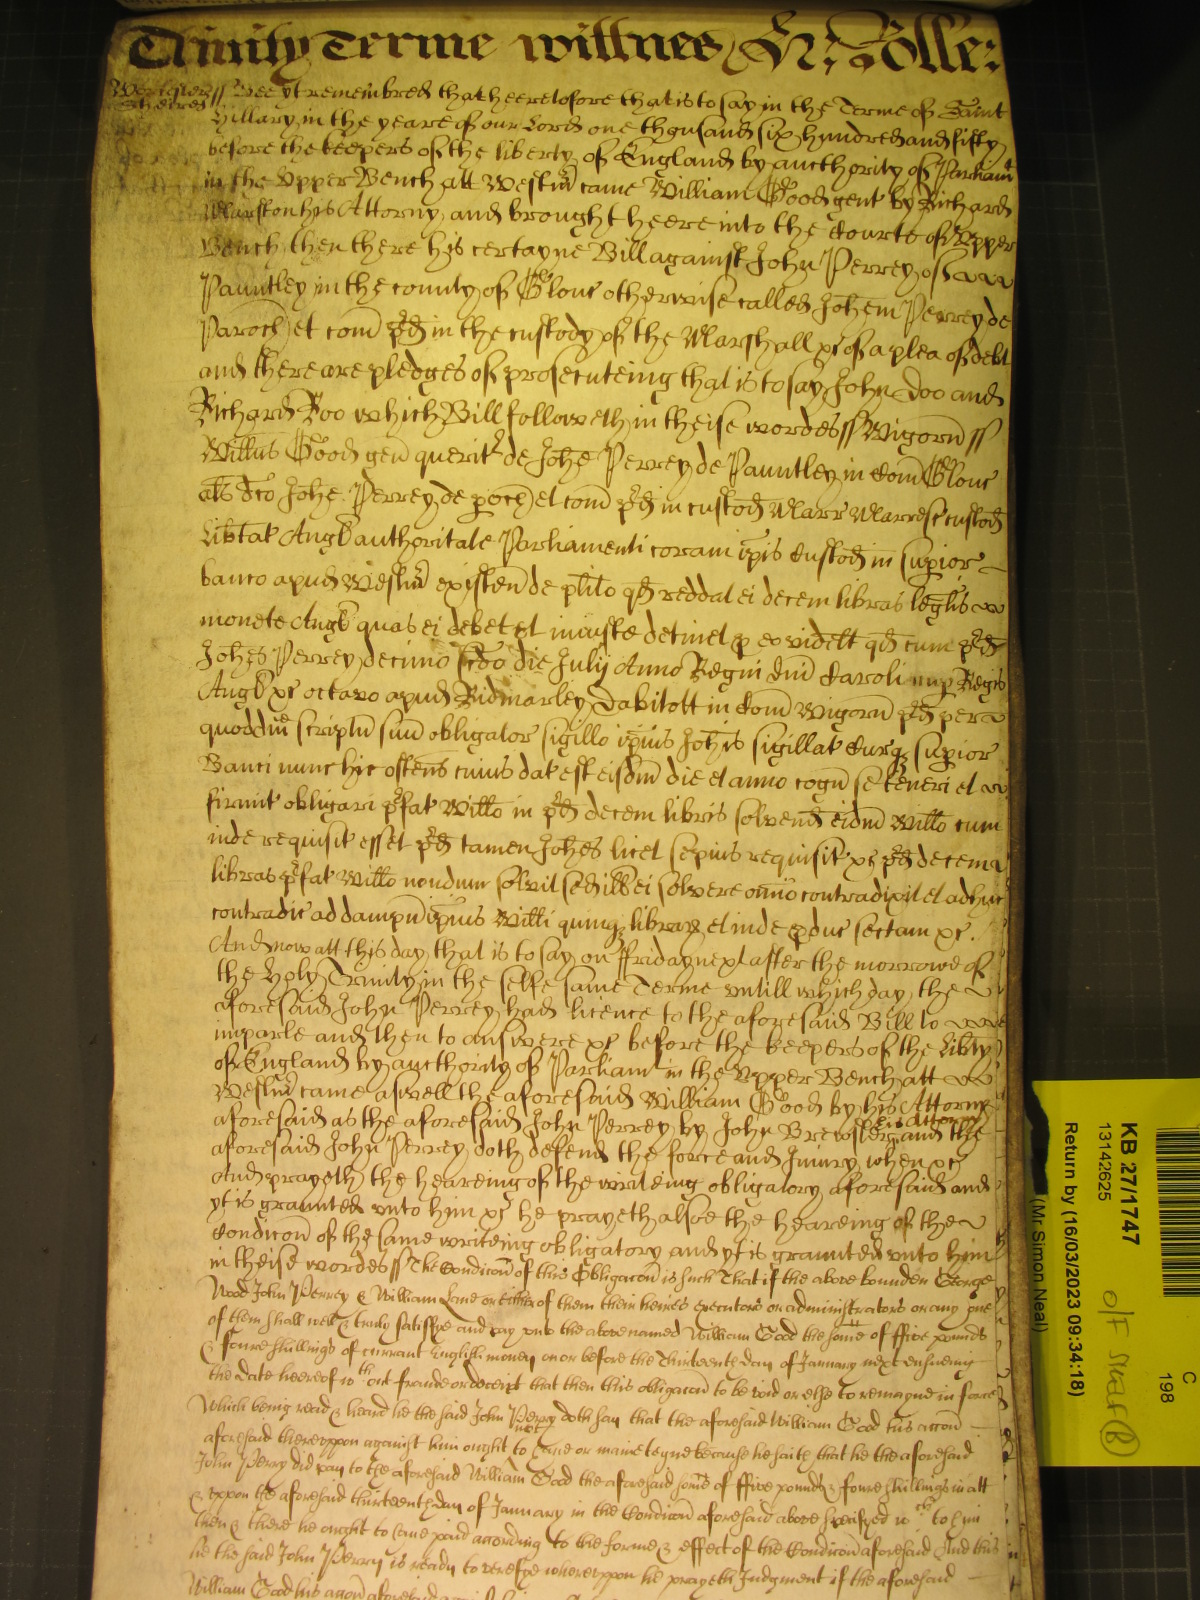 Trinity Terme wittnes H: Rolle:
Worcester ss Bee yt remembred that heeretofore that is to say in the Terme of Saint
Hillary in the yeare of our Lord one thousand six hundred and fifty
before the keepers of the liberty of England by aucthority of Parliamt
in the Upper Bench att Westm̄ came William Good gent by Richard
Marston his Attorny and brought heere into the Courte of Upper
Bench then there his certayne Bill against John Perrey of
Pauntley in the county of Glouc otherwise called Johem Perrey de
Paroch et com̄ p̄d in the custody of the Marshall &c of a plea of debt
and there are pledges of prosecuteing that is to say John Doo and
Richard Roo which Bill followeth in theise wordes ss Wigorn̄ ss
Willus Good gen̄ querit̄ de Johe Perrey de Pauntley in Com̄ Glouc
als dco Johe Perrey de poch et com̄ p̄d in custod Marr Marresc custod
Lib̄tat Angl authoritate Parliamenti coram ip̄is Custod in sup̄ior
banco apud Westm̄ existen̄ de pl̄ito qd reddat ei decem libras leḡlis
monete Angl quas ei debet et iniuste detinet p eo videlt qd cum p̄d
Johes Perrey decimo sc̄do die Julij Anno Regni dn̄i Caroli nup Regis
Angl &c octavo apud Ridmarley Dabitott in Com̄ Wigorn̄ p̄d per
quoddm̄ scriptū suū obligator sigillo ip̄ius Joh̄is sigillat Curq̨ sup̄ior
Banci nunc hic ostens cuius dat est eisdm̄ die et anno cogn̄ se teneri et
firmit obligari p̄fat Willo in p̄d decem libris solvend eidm̄ Willo cum
inde requisit esset p̄d tamen Johes licet sepius requisit &c p̄d decem
libras p̄fat Willo nondum solvit sed ill ei solvere om̄io contradixit et adhuc
contradic ad dampn̄ ip̄ius Willi quinq̨ librar̄ et inde pduc sectam &c.
And now att this day that is to say on Friday next after the morrowe of
the holy Trinity in the selfe same Terme untill which day the
aforesaid John Perrey had licence to the aforesaid Bill to
imparle and then to answere &c before the keepers of the Lib̄ty
of England by aucthority of Parliam̄ in the Upper Bench att
Westm̄ came aswell the aforesaid William Good by his Attorny
aforesaid as the aforesaid John Perrey by John Brewster his attorny and the
aforesaid John Perrey doth defend the force and Iniury when &c
And prayeth the heareing of the writeing obligatory aforesaid and
yt is graunted unto him &c he prayeth alsoe the heareing of the
Condicon̄ of the same writeing obligatory and yt is graunted unto him
in theise wordes ss The Condicon̄ of this Obligacon̄ is such That if the above bounden George
Wood John Perrey & William Lane or either of them their heires executors or administrators or any one
of them shall well & truly satisfye and pay unto the abovenamed William Good the some of ffive pounds
& foure shillings of currant English money on or before the Thirteenth day of January next ensueing
the date heereof wthout fraude or deceipt that then this obligacon̄ to be void or else to remayne in force
Which being read & heard he the said John Perry doth say that the aforesaid William Good his accon̄
aforesaid thereuppon against him ought not to have or mainteyne because he saith that he the aforesaid
John Perry did pay to the aforesaid William Good the aforesaid some of ffive pounds & foure shillings in att
& uppon the aforesaid thirteenth day of January in the Condicon̄ aforesaid above specifyed wch to him
then & there he ought to have paid according to the forme & effect of the Condicon̄ aforesaid And this
he the said John Perry is ready to verefye whereuppon he prayeth Judgment if the aforesaid
William Good his accon̄ aforesaid
KB 27/1747
13142625
Return by (16/03/2023 09:34:18)
(Mr Simon Neal)
C
198